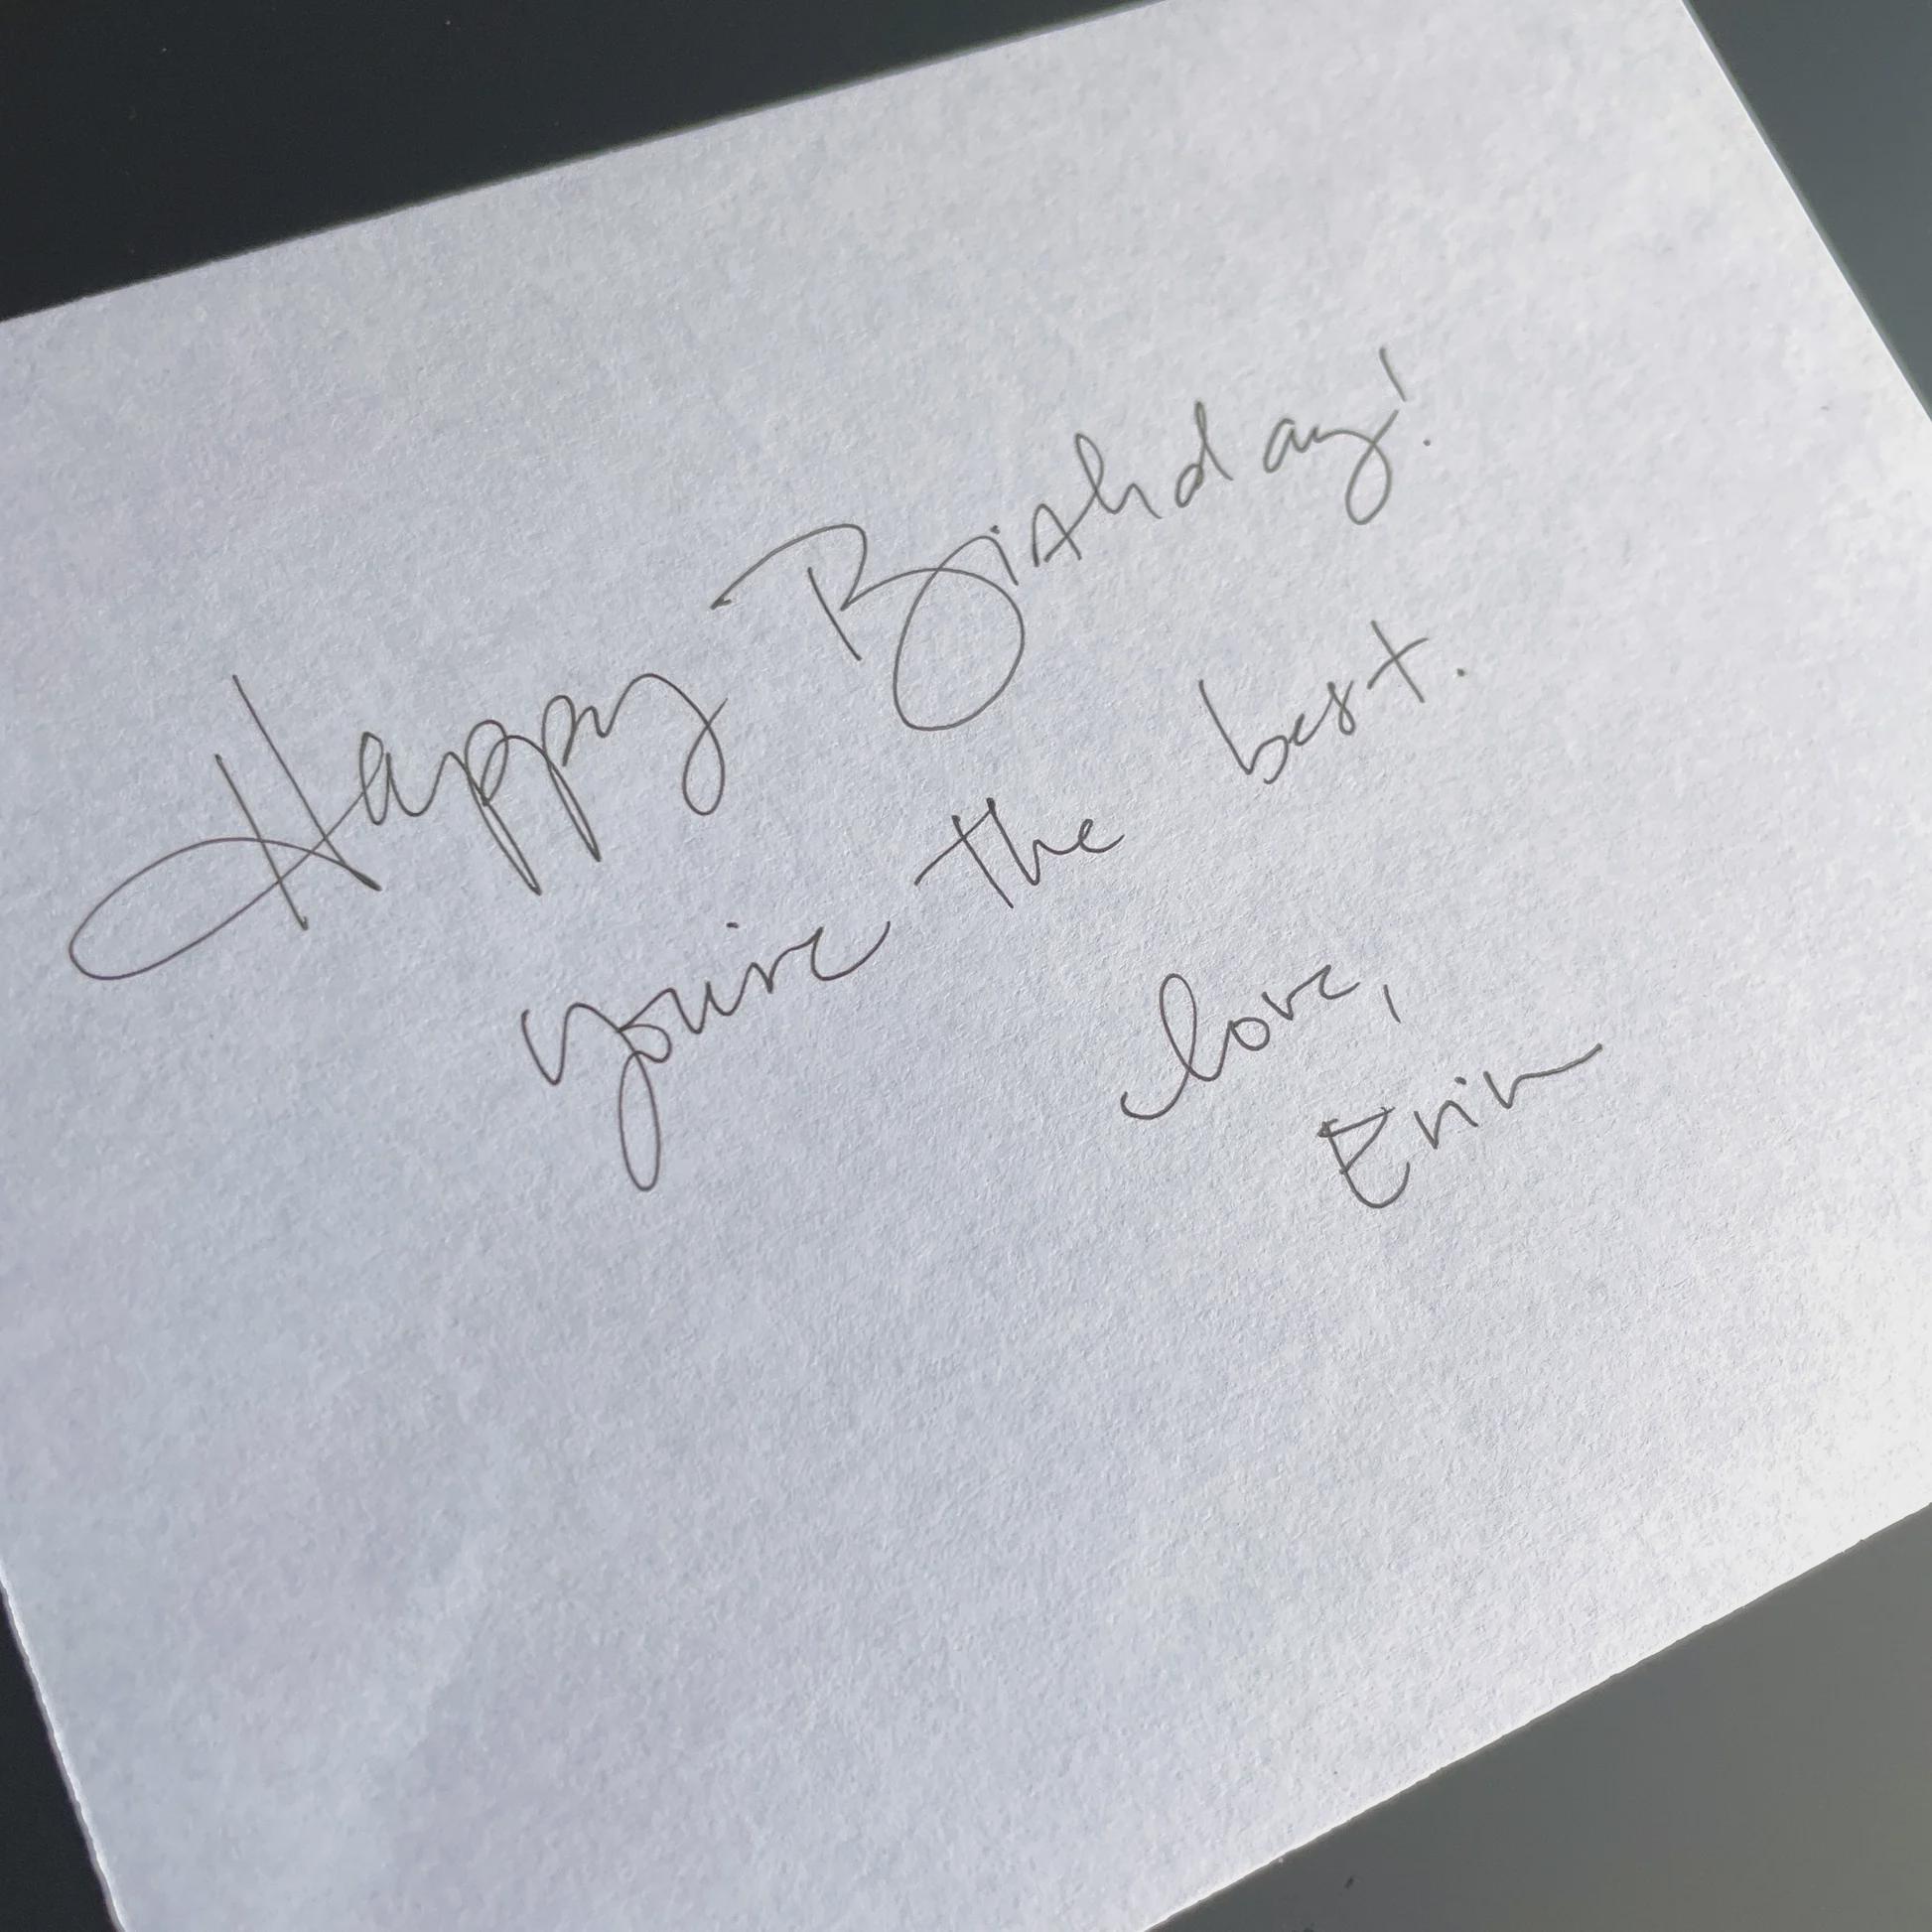 Happy Birthday!
you're the best.
love,
Erin